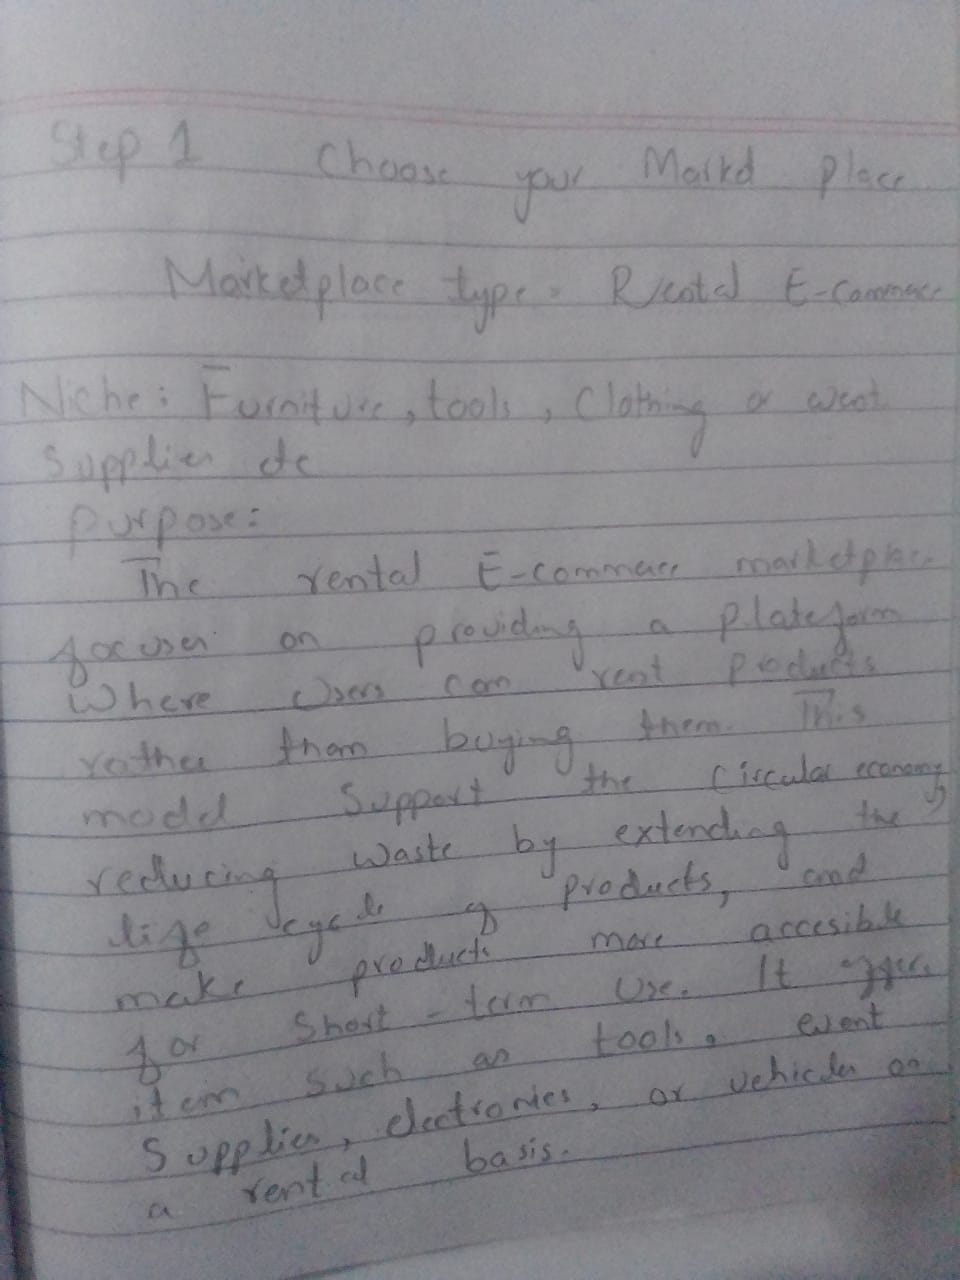 Step 1 Choose your Market place
Marketplace type: Rental E-commerce
Niche: Furniture, tools, Clothing or event
Supplies etc
Purpose:
The rental E-commerce marketplace
focuses on providing a Plateform
Where users can rent Products
rather than buying them. This
model Support the Circular economy
reducing waste by extending the
life cycle of products, and
make products more accesible
for Short-term Use. It offers
item such as tools, event
Supplies, electronics, or vehicles on
a rental basis.